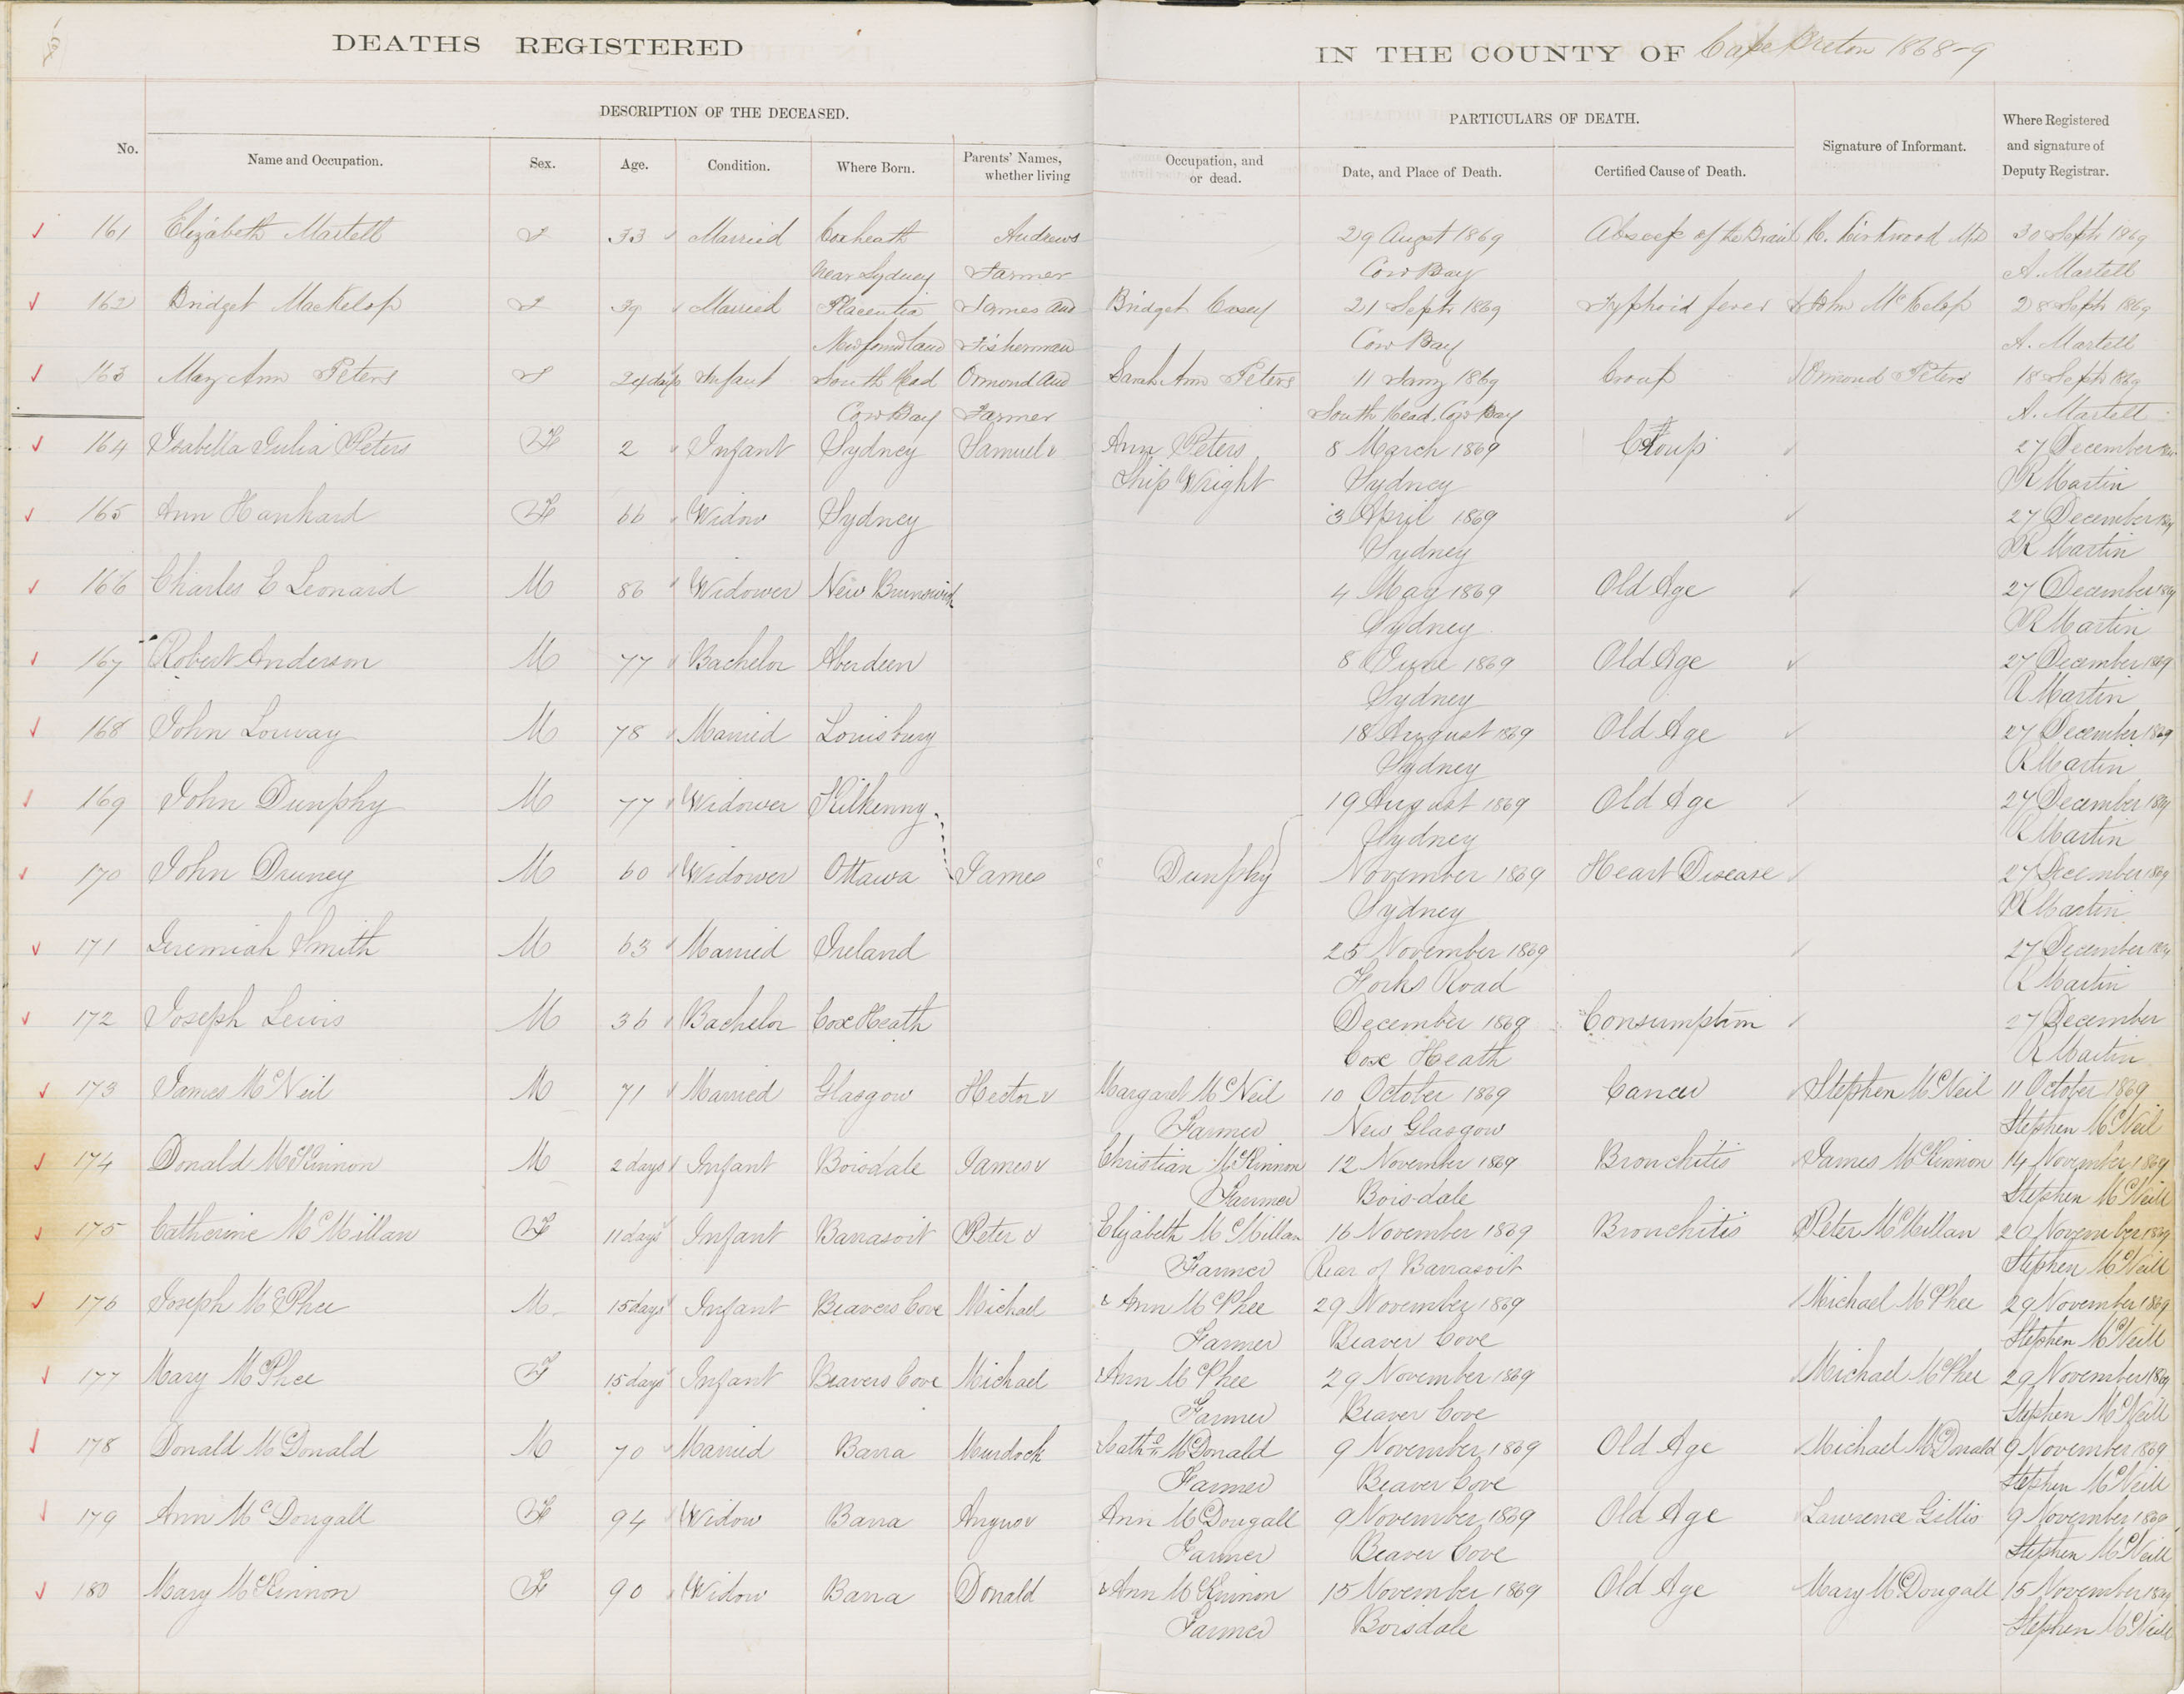 DEATHS REGISTERED IN THE COUNTY OF Cape Breton 1868-9
DESCRIPTION OF THE DECEASED. PARTICULARS OF DEATH.
No. Name and Occupation. Sex. Age. Condition. Where Born. Parents' Names, whether living Occupation, and or dead. Date, and Place of Death. Certified Cause of Death. Signature of Informant. Where Registered and signature of Deputy Registrar.
161 Elizabeth Martell F 33 Married Coxheath Andrews 29 August 1869 Abscess of the Brain R. Kirkwood MD 30 Septr 1869
Near Sydney Farmer Cow Bay A. Martell
162 Bridget MacKelop F 39 Married Placentia James and Bridget Casey 21 Septr 1869 Typhoid fever John McKelop 28 Septr 1869
Newfoundland Fisherman Cow Bay A. Martell
163 Mary Ann Peters F 24 days Infant South Head Ormond and Sarah Ann Peters 11 1869 Croup Ormond Peters 18 Septr 1869
Cow Bay Farmer South Head, Cow Bay A. Martell
164 Isabella Julia Peters F 2 Infant Sydney Samuel & Ann Peters 8 March 1869 Croup 27 December
Ship Wright Sydney R Martin
165 Ann Hanhard F 66 Widow Sydney 3 April 1869 27 December 1869
Sydney R Martin
166 Charles E Leonard M 86 Widower New Brunswick 4 May 1869 Old Age 27 December 1869
Sydney R Martin
167 Robert Anderson M 77 Bachelor Aberdeen 8 June 1869 Old Age 27 December 1869
Sydney R Martin
168 John Lorway M 78 Married Louisburg 18 August 1869 Old Age 27 December 1869
Sydney R Martin
169 John Dunphy M 77 Widower Kilkenny 19 August 1869 Old Age 27 December 1869
Sydney R Martin
170 John Druney M 60 Widower Ottawa James Dunphy November 1869 Heart Disease 27 December 1869
Sydney R Martin
171 Jeremiah Smith M 63 Married Ireland 25 November 1869 27 December 1869
Forks Road R Martin
172 Joseph Lewis M 36 Bachelor Coxe Heath December 1869 Consumption 27 December
Coxe Heath R Martin
173 James McNeil M 71 Married Glasgow Hector & Margaret McNeil 10 October 1869 Cancer Stephen McNeil 11 October 1869
Farmer New Glasgow Stephen McNeil
174 Donald McKinnon M 2 days Infant Boisdale James & Christian McKinnon 12 November 1869 Bronchitis James McKinnon 14 November 1869
Farmer Boisdale Stephen McNeill
175 Catherine McMillan F 11 days Infant Barrasoit Peter & Elizabeth McMillan 16 November 1869 Bronchitis Peter McMillan 20 November 1869
Farmer Rear of Barrasoit Stephen McNeill
176 Joseph McPhee M 15 days Infant Beavers Cove Michael & Ann McPhee 29 November 1869 Michael McPhee 29 November 1869
Farmer Beaver Cove Stephen McNeill
177 Mary McPhee F 15 days Infant Beavers Cove Michael & Ann McPhee 29 November 1869 Michael McPhee 29 November 1869
Farmer Beaver Cove Stephen McNeill
178 Donald McDonald M 70 Married Barra Murdock & Cathe McDonald 9 November 1869 Old Age Michael McDonald 9 November 1869
Farmer Beaver Cove Stephen McNeill
179 Ann McDougall F 94 Widow Barra Angus & Ann McDougall 9 November 1869 Old Age Lawrence Gillis 9 November 1869
Farmer Beaver Cove Stephen McNeill
180 Mary McKinnon F 90 Widow Barra Donald & Ann McKinnon 15 November 1869 Old Age Mary McDougall 15 November 1869
Farmer Boisdale Stephen McNeill